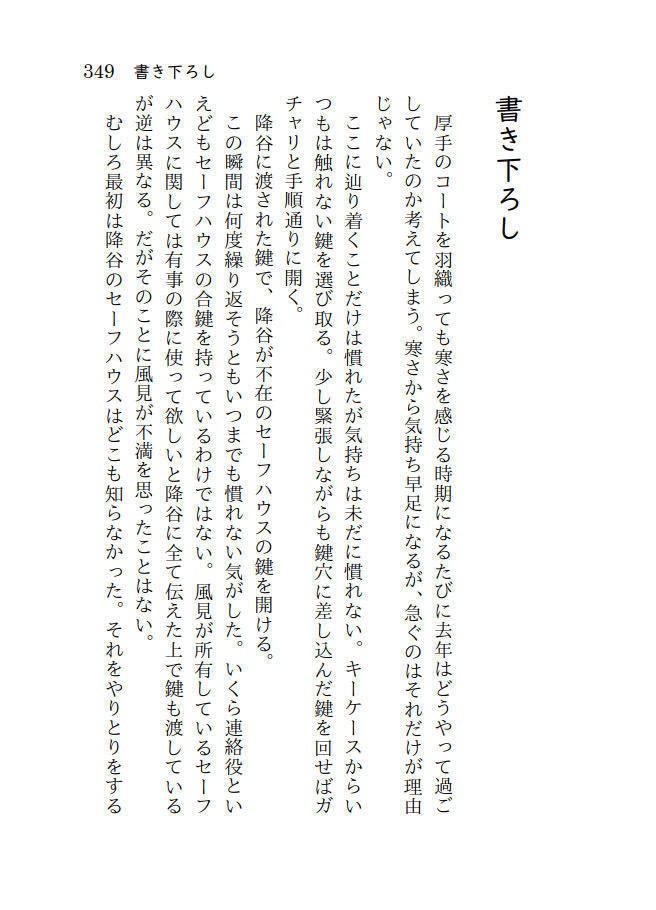 349　書き下ろし
書き下ろし
　厚手のコートを羽織っても寒さを感じる時期になるたびに去年はどうやって過ご
していたのか考えてしまう。寒さから気持ち早足になるが、急ぐのはそれだけが理由
じゃない。
　ここに辿り着くことだけは慣れたが気持ちは未だに慣れない。キーケースからい
つもは触れない鍵を選び取る。少し緊張しながらも鍵穴に差し込んだ鍵を回せばガ
チャリと手順通りに開く。
　降谷に渡された鍵で、降谷が不在のセーフハウスの鍵を開ける。
　この瞬間は何度繰り返そうともいつまでも慣れない気がした。いくら連絡役とい
えどもセーフハウスの合鍵を持っているわけではない。風見が所有しているセーフ
ハウスに関しては有事の際に使って欲しいと降谷に全て伝えた上で鍵も渡している
が逆は異なる。だがそのことに風見が不満を思ったことはない。
　むしろ最初は降谷のセーフハウスはどこも知らなかった。それをやりとりをする